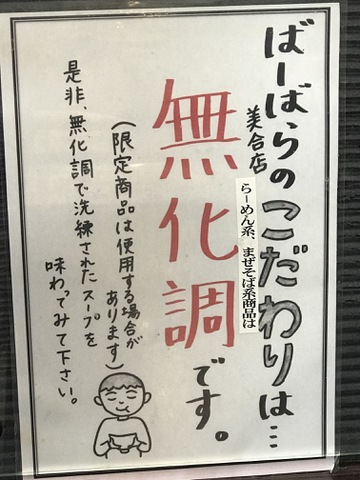 ばーばらのこだわりは…
美合店
らーめん系、まぜそば系商品は
無化調です。
(限定商品は使用する場合が
あります)
是非、無化調で洗練されたスープを
味わってみて下さい。